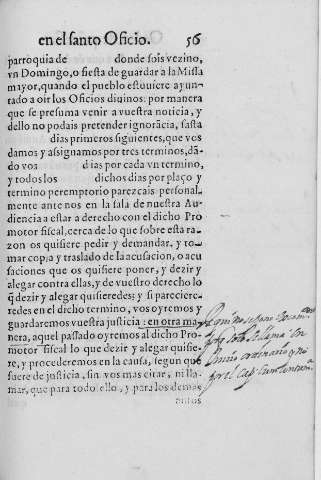 en el santo Oficio. 56
parroquia de donde sois vezino,
vn Domingo, o fiesta de guardar a la Missa
mayor, quando el pueblo estuuiere ayun-
tado a oir los Oficios diuinos: por manera
que se presuma venir a vuestra noticia, y
dello no podais pretender ignorãcia, fasta
dias primeros siguientes, que vos
damos y assignamos por tres terminos, dã-
do vos dias por cada vn termino,
y todos los dichos dias por plaço y
termino peremptorio parezcais personal-
mente ante nos en la sala de nuestra Au-
diencia a estar a derecho con el dicho Pro
motor fiscal, cerca de lo que sobre esta ra-
zon os quisiere pedir y demandar, y to-
mar copia y traslado de la acusacion, o acu
saciones que os quisiere poner, y dezir y
alegar contra ellas, y de vuestro derecho lo
q̃ dezir y alegar quisieredes: y si pareciere-
redes en el dicho termino, vos oyremos y
guardaremos vuestra justicia: en otra ma-
nera, aquel passado oyremos al dicho Pro-
motor fiscal lo que dezir y alegar quisie-
re, y procederemos en la causa, segun que
fuere de justicia, sin vos mas citar, ni lla-
mar, que para todo ello, y para los demas
autos